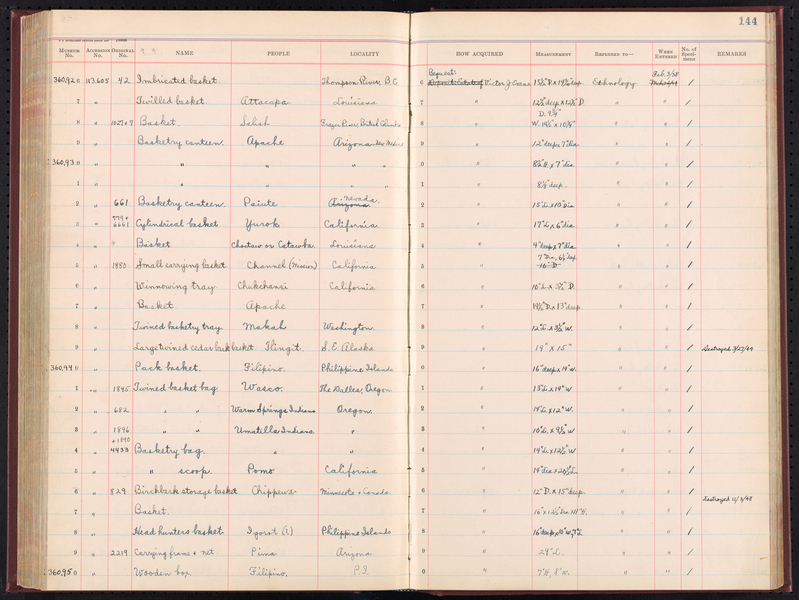 144
MUSEUM No. ACCESSION No. ORIGINAL No. NAME PEOPLE LOCALITY HOW ACQUIRED MEASUREMENT REFERRED TO— WHEN ENTERED No. of Speci-mens REMARKS
Bequest: Feb. 3/38
360,920 113,605 42 Imbricated basket. Thompson River, B.C. 0 Victor J. Evans Ethnology /
7 " Twilled basket Attacapa Louisiana 7 " 12½"deep x 12½" D. " " /
D. 9¾"
8 " Basket. Salish Frazer River, British Columbia 8 " " " /
9 " Basketry canteen Apache Arizona-New Mexico 9 " 12"deep x 7"dia. " " /
360,930 " " " " " 0 " 8½"H. x 7"dia. " " /
1 " " " " " 1 " 8½"deep. " " /
Nevada.
2 " 661 Basketry canteen. Paiute Arizona 2 " 15"L. x 10"Dia " " /
3 " 6661 Cylindrical basket Yurok California 3 " 17"L. x 6"dia. " " /
4 " " Basket Choctaw or Catawba. Louisiana 4 " 4"deep x 7"dia. " " /
7"Dia., 6½"deep
5 " 1980 Small carrying basket Channel (Mission) California 5 " 10" D. " " /
6 " Winnowing tray Chukchansi California 6 " " " /
7 " Basket Apache 7 " 14½"D. x 13"deep. " " /
8 " Twined basketry tray Makah Washington. 8 " 12"L. x 3½"W. " " /
9 " Large twined cedar bark basket Tlingit. S.E. Alaska 9 " 19" x 15" " " / Destroyed 3/27/44
360,940 " Pack basket. Filipino. Philippine Islands 0 " 16"deep x 14"W. " " /
1 " 1845 Twined basket bag. Wasco. The Dalles, Oregon 1 " 15"L. x 14"W " " /
2 " 682 " " Warm Springs Indians Oregon. 2 " 14"L. x 12"W. " " /
3 " 1896 " " Umatilla Indians. " 3 " 10"L. x 9½"W " " /
+1890
4 " 4433 Basketry bag. " " 4 " 14"L. x 12½"W " " /
5 " " scoop. Pomo California 5 " " " /
6 " 829 Birchbark storage basket Chippewa Minnesota + Canada 6 " 12"D. x 15"deep. " " /
Destroyed 11/3/48
7 " Basket. 7 " " " /
8 " Head hunters basket Igorot (?) Philippine Islands 8 " " " /
9 " 2219 Carrying frame + net Pima Arizona 9 " 29"L. " " /
360,950 " Wooden box Filipino. P.I. 0 " 7"H., 8"W. " " /